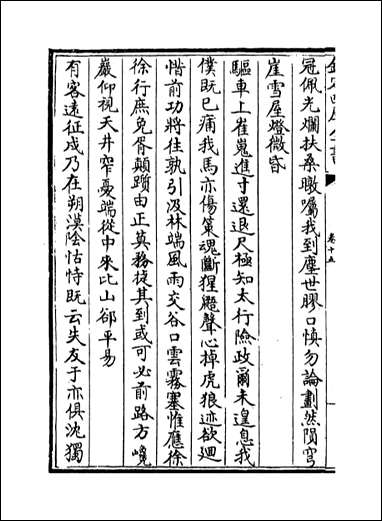 冠佩光斕扶桑暾囑我到塵世膠口慎勿論劃然隕穹
崖雪屋燈微昏
驅車上崔嵬進寸還退尺極知太行險政爾未遑息我
僕既已痡我馬亦傷策魂斷猩鼯聲心掉虎狼迹欲迴
惜前功將住孰引汲林端風雨交谷口雲霧塞惟應徐
徐行庶免胥顛躓由正莫務捷其到或可必前路方嶢
巖仰視天井窄憂端從中來比山郤平易
有客遠征戍乃在朔漠陰怙恃既云失友于亦俱沈獨
卷十五